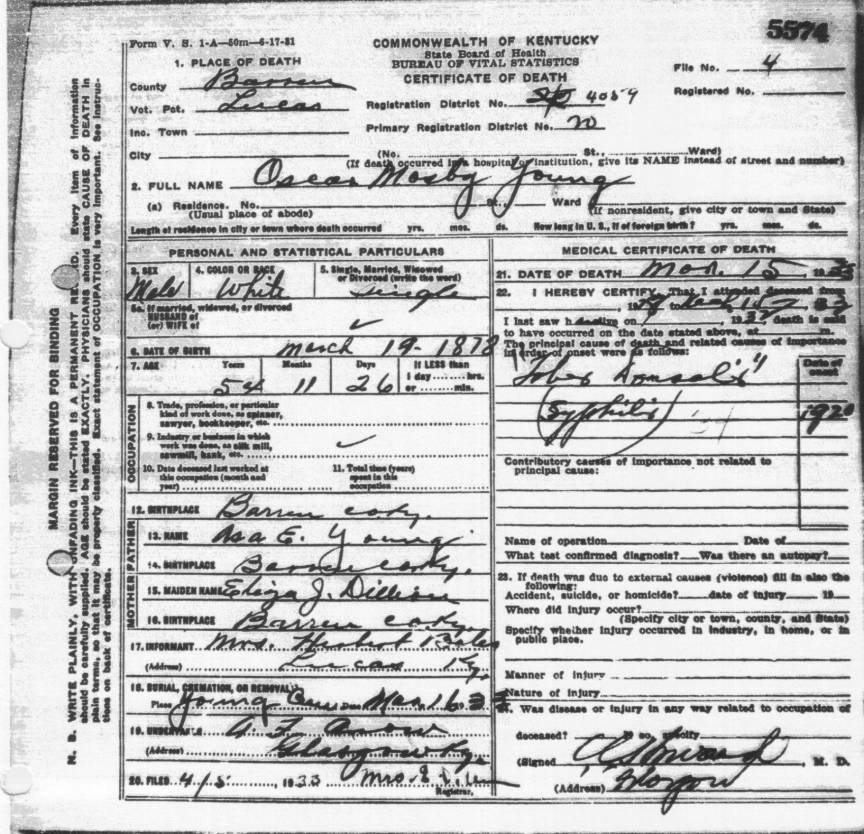 5574
Form V. S. 1-A—50m—6-17-31
COMMONWEALTH OF KENTUCKY
State Board of Health
BUREAU OF VITAL STATISTICS
CERTIFICATE OF DEATH
File No. 4
Registered No.
1. PLACE OF DEATH
County Barren
Vot. Pct. Lucas
Inc. Town
City
Registration District No. 4059
Primary Registration District No. 20
(No. St., Ward)
(If death occurred in a hospital or institution, give its NAME instead of street and number)
2. FULL NAME Oscar Mosby Young
(a) Residence. No. St., Ward
(Usual place of abode)
(If nonresident, give city or town and State)
Length of residence in city or town where death occurred yrs. mos. ds. How long in U. S., if of foreign birth? yrs. mos. ds.
PERSONAL AND STATISTICAL PARTICULARS
3. SEX Male
4. COLOR OR RACE White
5. Single, Married, Widowed or Divorced (write the word) Single
5a. If married, widowed, or divorced
HUSBAND of
(or) WIFE of ✓
6. DATE OF BIRTH March 19-1878
7. AGE Years 54 Months 11 Days 26 If LESS than
1 day hrs.
or min.
OCCUPATION
8. Trade, profession, or particular
kind of work done, as spinner,
sawyer, bookkeeper, etc.
9. Industry or business in which
work was done, as silk mill,
sawmill, bank, etc. ✓
10. Date deceased last worked at
this occupation (month and
year)
11. Total time (years)
spent in this
occupation
12. BIRTHPLACE Barren co Ky.
FATHER
13. NAME Asa E. Young
14. BIRTHPLACE Barren co Ky.
MOTHER
15. MAIDEN NAME Eliza J. Dillion
16. BIRTHPLACE Barren co Ky.
17. INFORMANT Mrs. Herbert Bales
(Address) Lucas Ky.
18. BURIAL, CREMATION, OR REMOVAL
Place Young Date Mar. 16 33
19. UNDERTAKER A. F.
(Address) Glasgow Ky.
20. FILED 4/5, 1933 Mrs.
Registrar.
MEDICAL CERTIFICATE OF DEATH
21. DATE OF DEATH Mar. 15, 1933
22. I HEREBY CERTIFY, That I attended deceased from
, 19 to 15, 33
I last saw h alive on 19 death is said
to have occurred on the date stated above, at m.
The principal cause of death and related causes of importance
in order of onset were as follows:
Date of onset
"Tabes Dorsalis"
(Syphilis) 1920
Contributory causes of importance not related to
principal cause:
Name of operation Date of
What test confirmed diagnosis? Was there an autopsy?
23. If death was due to external causes (violence) fill in also the
following:
Accident, suicide, or homicide? date of injury 19
Where did injury occur?
(Specify city or town, county, and State)
Specify whether injury occurred in industry, in home, or in
public place.
Manner of injury
Nature of injury
24. Was disease or injury in any way related to occupation of
deceased? If so, specify
(Signed) , M. D.
(Address)
MARGIN RESERVED FOR BINDING
N. B. WRITE PLAINLY, WITH UNFADING INK—THIS IS A PERMANENT RECORD. Every item of information
should be carefully supplied. AGE should be stated EXACTLY. PHYSICIANS should state CAUSE OF DEATH in
plain terms, so that it may be properly classified. Exact statement of OCCUPATION is very important. See instruc-
tions on back of certificate.